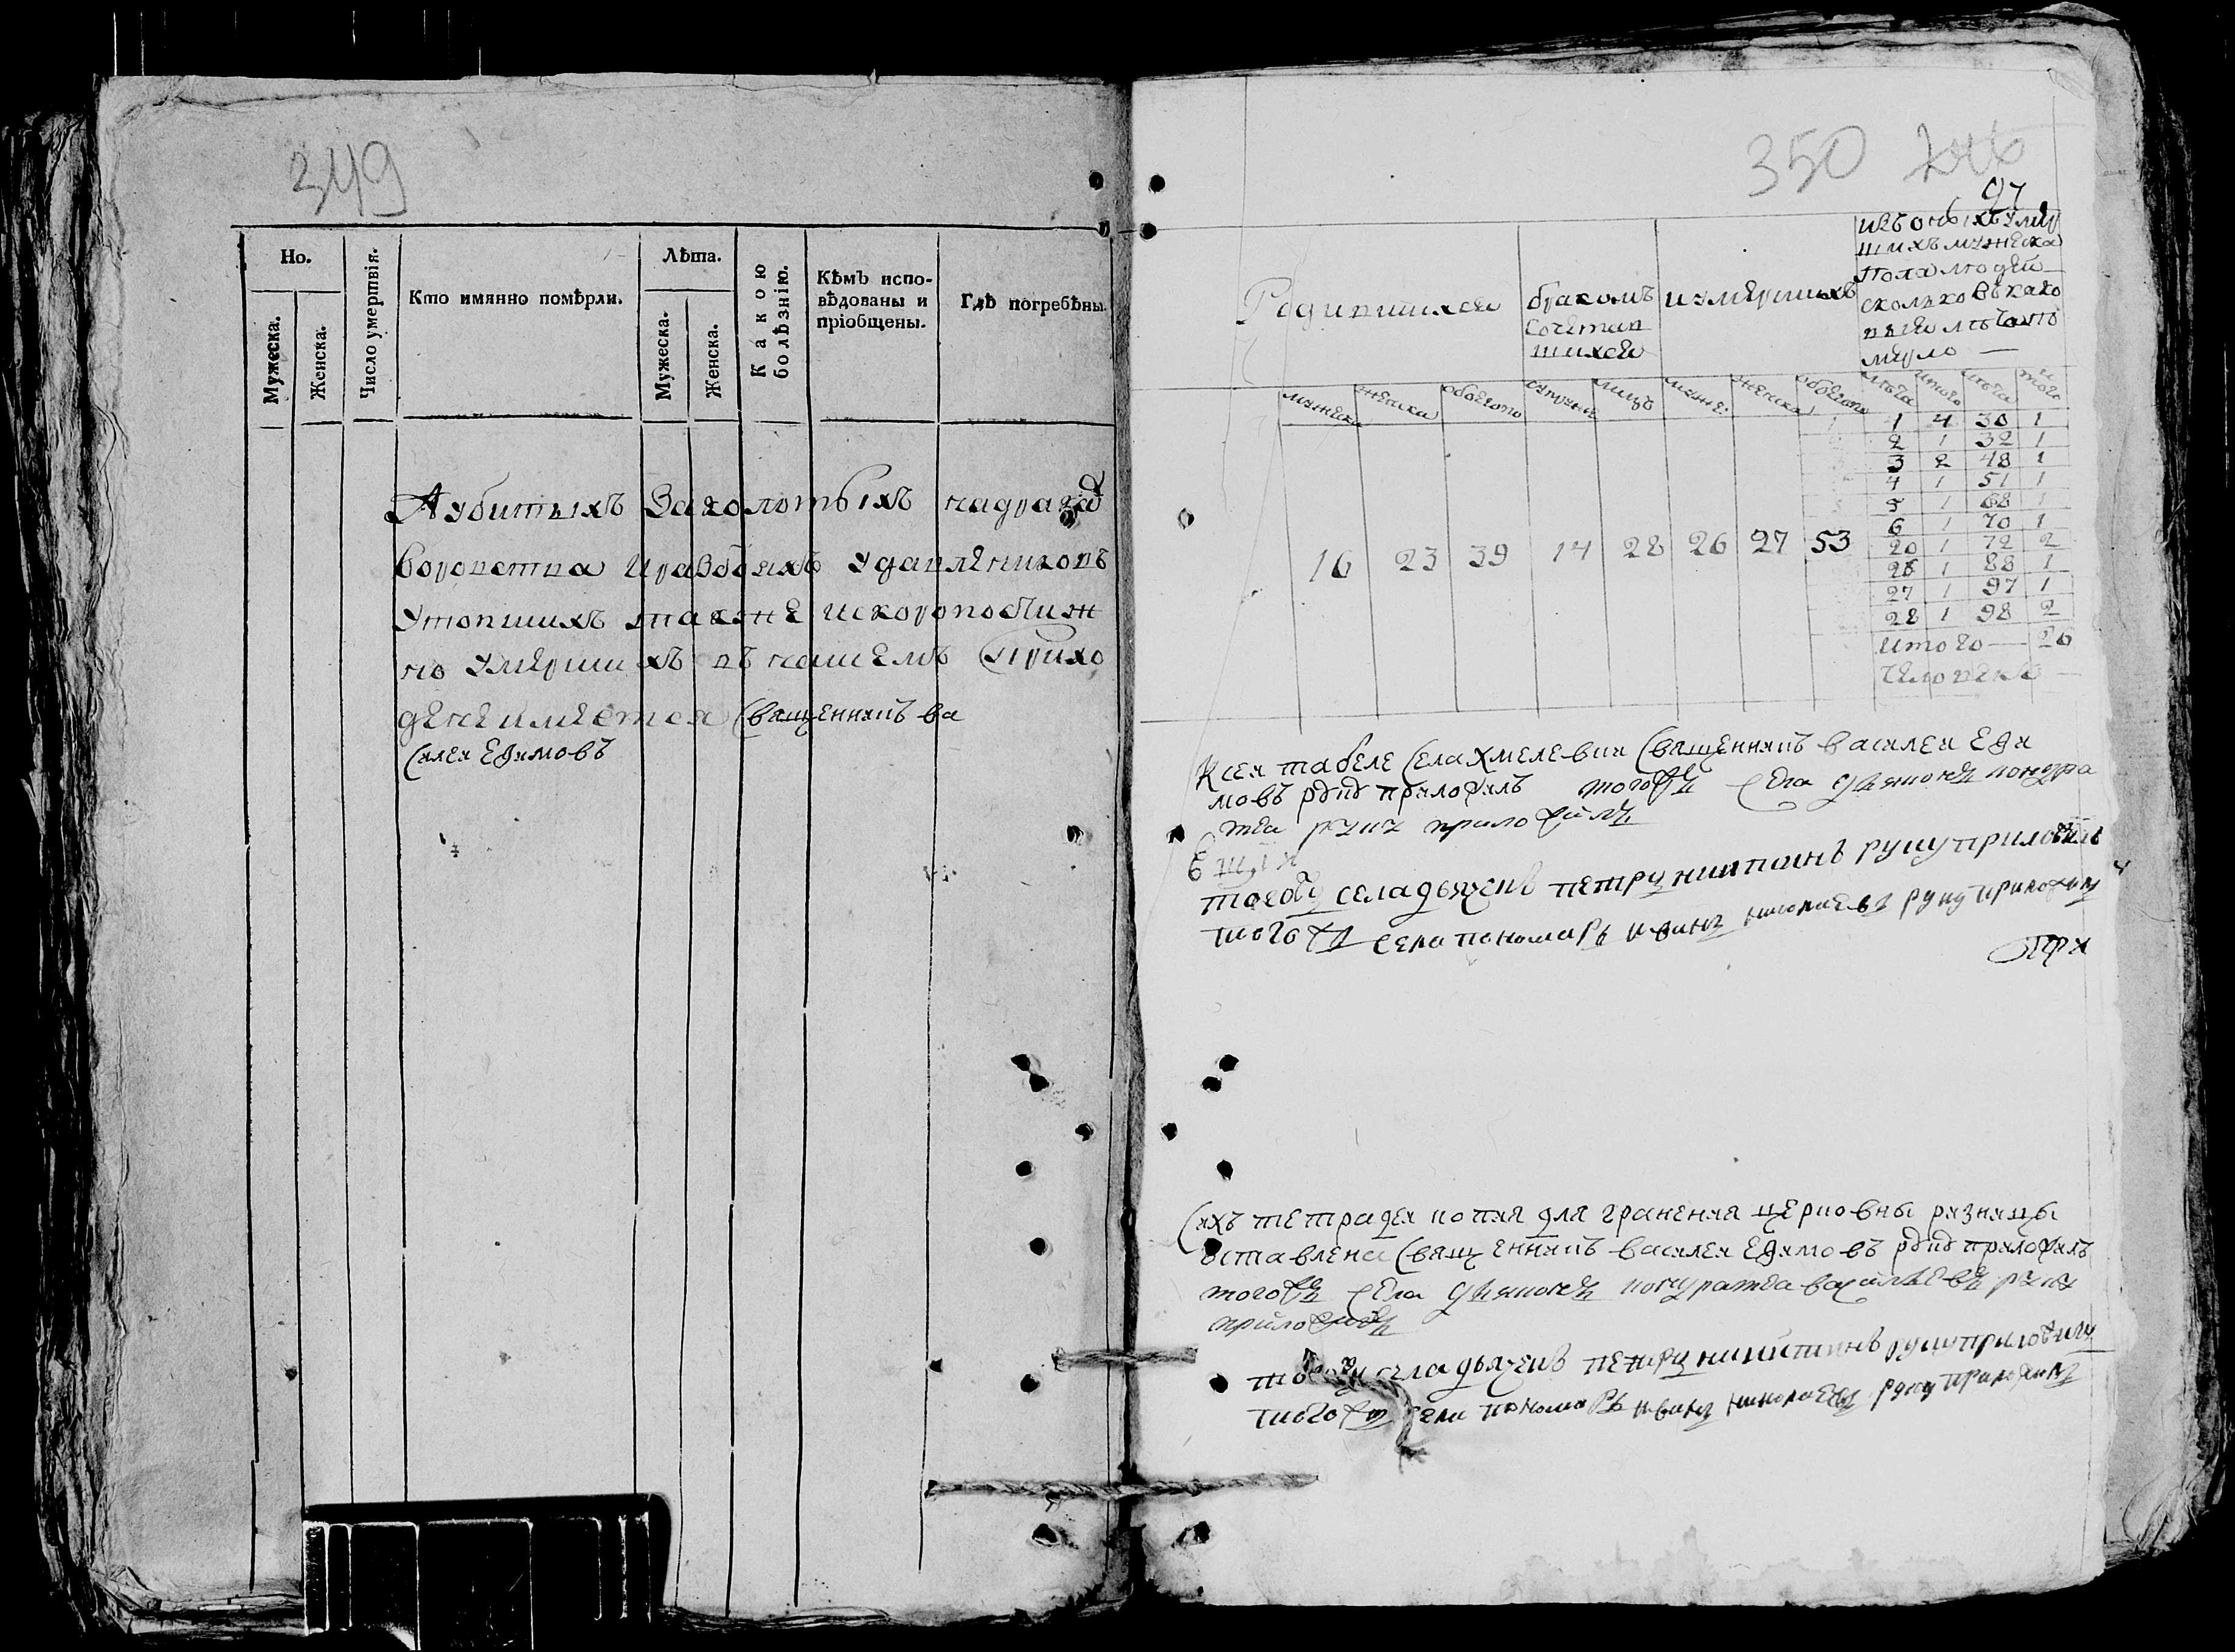 349
Но.
Мужеска.
Женска.
Число умертвія.
Кто имянно помѣрли.
Лѣта.
Мужеска.
Женска.
Какою болѣзнію.
Кѣмъ испо-
вѣдованы и
пріобщены.
Гдѣ погребѣны.
А убитыхъ заколотыхъ надрака
воровства иразбояхъ удавленниковъ
утопшихъ также искоропостиж
но умершихъ въ нашемъ прихо
де не имеется Священникъ ва
силеи Едимовъ
350
97
Родившихся
бракомъ
сочетав
шихся
иумершихъ
изъ оныхъ умер
шихъ мужеска
пола людей
сколько въ како
вые лета кто
мерло —
мужеска женска обоего супруж лицъ муже женска обоего лѣта итого лѣта итого
16 23 39 14 28 26 27 53
1 4 30 1
2 1 32 1
3 2 48 1
4 1 51 1
5 1 68 1
6 1 70 1
20 1 72 2
26 1 88 1
27 1 97 1
28 1 98 2
итого — 26
человекъ —
К сеи табеле села Хмелевки Священникъ василеи Еди
мовъ руку приложилъ того же села дьяконъ кондра
теи руку приложилъ
того же села дьячекъ петръ никитинъ руку приложилъ
того же села пономарь иванъ николаевъ руку приложилъ
Сихъ тетрадеи копия для хранения церковны ризницы
оставлена Священникъ василеи Едимовъ руку приложилъ
того же села дьяконъ кондратеи васильевъ руку
приложилъ
того же села дьячекъ петръ никитинъ руку приложилъ
того же села пономарь иванъ николаевъ руку приложилъ